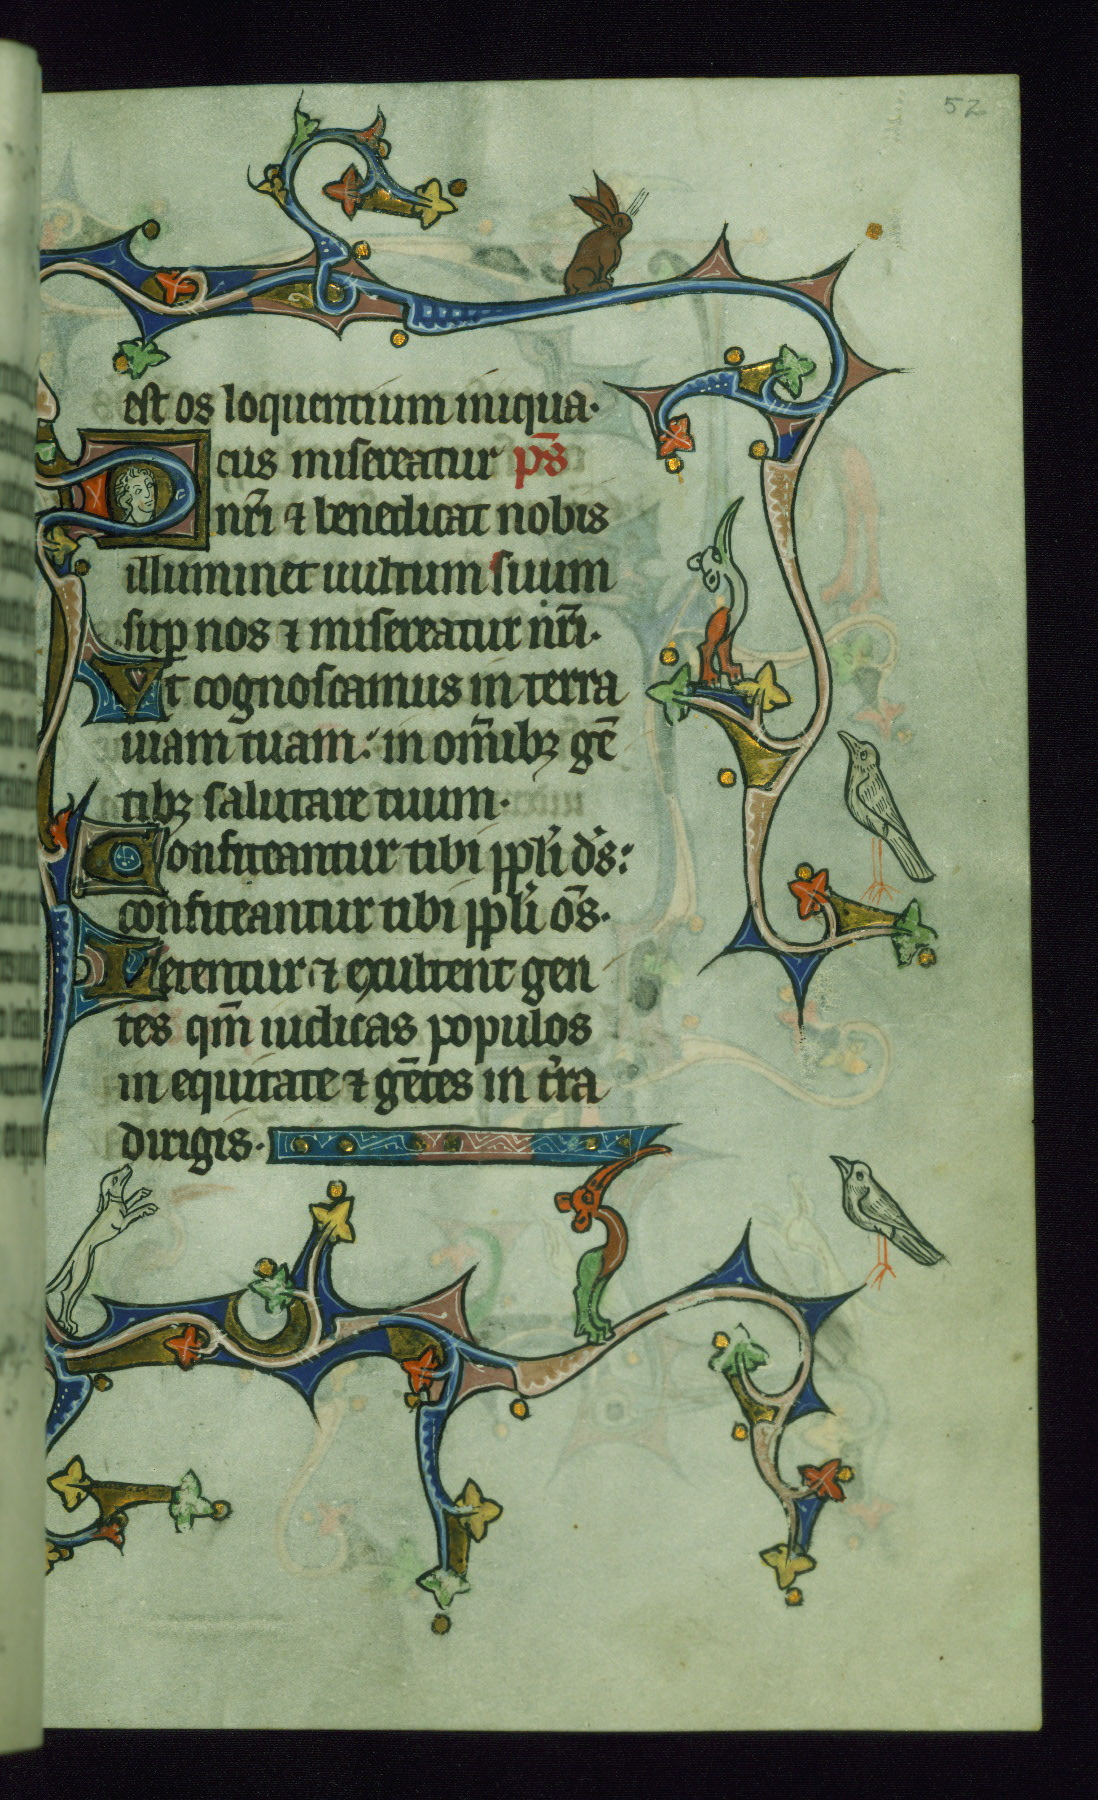 52
est os loquentium iniqua·
Deus misereatur ps̄
nr̄i ⁊ benedicat nobis
illuminet uultum suum
sup nos ⁊ misereatur nr̄i·
Vt cognoscamus in terra
uiam tuam: in om̄ibꝫ gē
tibꝫ salutare tuum·
Confiteantur tibi ppl̄i ds̄:
confiteantur tibi ppl̄i om̄s·
Letentur ⁊ exultent gen
tes qm̄ iudicas populos
in equitate ⁊ gētes in t̄ra
dirigis·